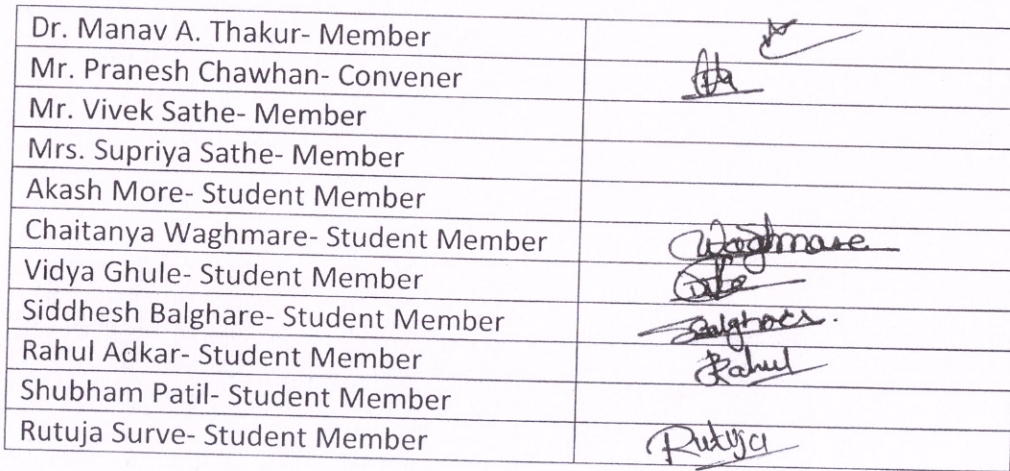 Dr. Manav A. Thakur- Member
Mr. Pranesh Chawhan- Convener
Mr. Vivek Sathe- Member
Mrs. Supriya Sathe- Member
Akash More- Student Member
Chaitanya Waghmare- Student Member Waghmare
Vidya Ghule- Student Member
Siddhesh Balghare- Student Member
Rahul Adkar- Student Member Rahul
Shubham Patil- Student Member
Rutuja Surve- Student Member Rutuja